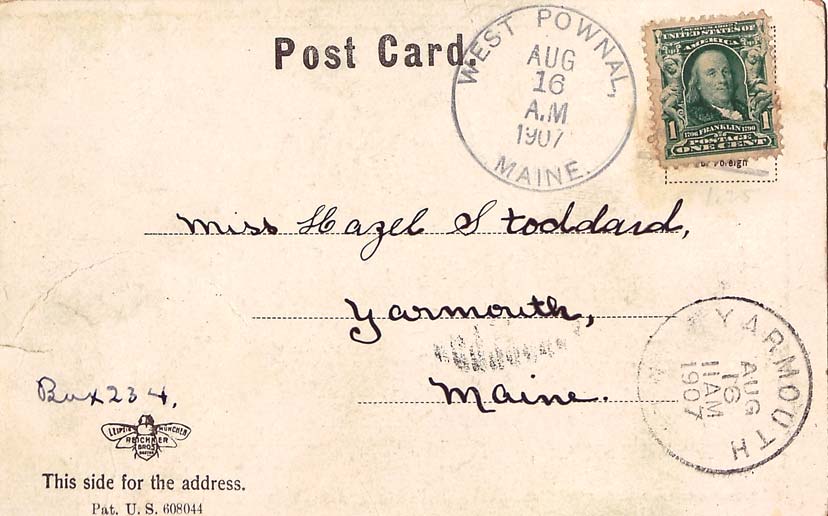 Post Card.
WEST POWNAL,
AUG
16
A.M
1907
MAINE.
UNITED STATES OF
AMERICA
1 FRANKLIN 1
POSTAGE
ONE CENT
or Foreign
1.25
Miss Hazel Stoddard,
Yarmouth,
Maine.
YARMOUTH
AUG
16
11AM
1907
Box 234,
LEIPZIG MÜNCHEN
REICHNER
BROS
BOSTON
This side for the address.
Pat. U. S. 608044